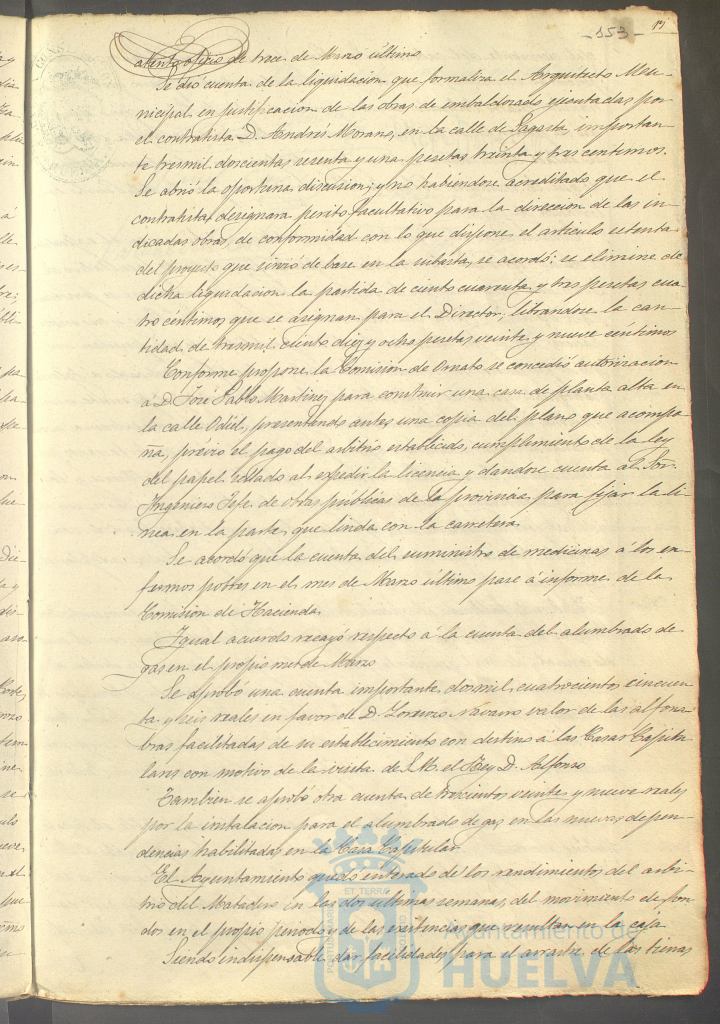 -153-
atento oficio de trece de Marzo último
Se dió cuenta de la liquidacion que formaliza el Arquitecto Mu-
nicipal en justificacion de las obras de embaldosado ejecutadas por
el contratista D. Andres Morano, en la calle de Sagasta, importan-
te tresmil doscientas sesenta y una pesetas treinta y tres centimos.
Se abrió la oportuna discusion; y no habiendose acreditado que el
contratista, designara perito facultativo para la direccion de las in-
dicadas obras, de conformidad con lo que dispone el articulo setenta
del proyecto que sirvió de base en la subasta, se acordó: se elimine de
dicha liquidacion la partida de ciento cuarenta y tres pesetas cua-
tro céntimos que se asignan para el Director, librandose la can-
tidad de tresmil ciento diez y ocho pesetas veinte y nueve céntimos
Conforme propone la Comision de Ornato se concedió autorizacion
á D. José Pablo Martinez para construir una casa de planta alta en
la calle Odiel, presentando antes una copia del plano que acompa-
ña, prévio el pago del arbitrio establecido, cumplimiento de la ley
del papel sellado al expedir la licencia y dandose cuenta al Sor.
Ingeniero Jefe de obras públicas de la provincia para fijar la lí-
nea en la parte que linda con la carretera
Se abordó que la cuenta del suministro de medicinas á los en-
fermos pobres en el mes de Marzo último pase á informe de la
Comision de Hacienda.
Igual acuerdo recayó respecto á la cuenta del alumbrado de
gas en el propio mes de Marzo
Se aprobó una cuenta importante dosmil cuatrocientos cincuen-
ta y seis reales en favor de D. Lorenzo Navarro valor de las alfom-
bras facilitadas de su establecimiento con destino á las Casas Capitu-
lares con motivo de la visita de S. M. el Rey D. Alfonso
Tambien se aprobó otra cuenta de trescientos veinte y nueve reales
por la instalacion para el alumbrado de gas en las nuevas depen-
dencias habilitadas en la Casa Capitular.
El Ayuntamiento quedó enterado de los rendimientos del arbi-
trio del Matadero en las dos ultimas semanas, del movimiento de fon-
dos en el propio periodo y de las existencias que resultan en la caja
Siendo indispensable dar facilidades para el arrastre de las tierras
ET TERRAE
Ayuntamiento de
HUELVA